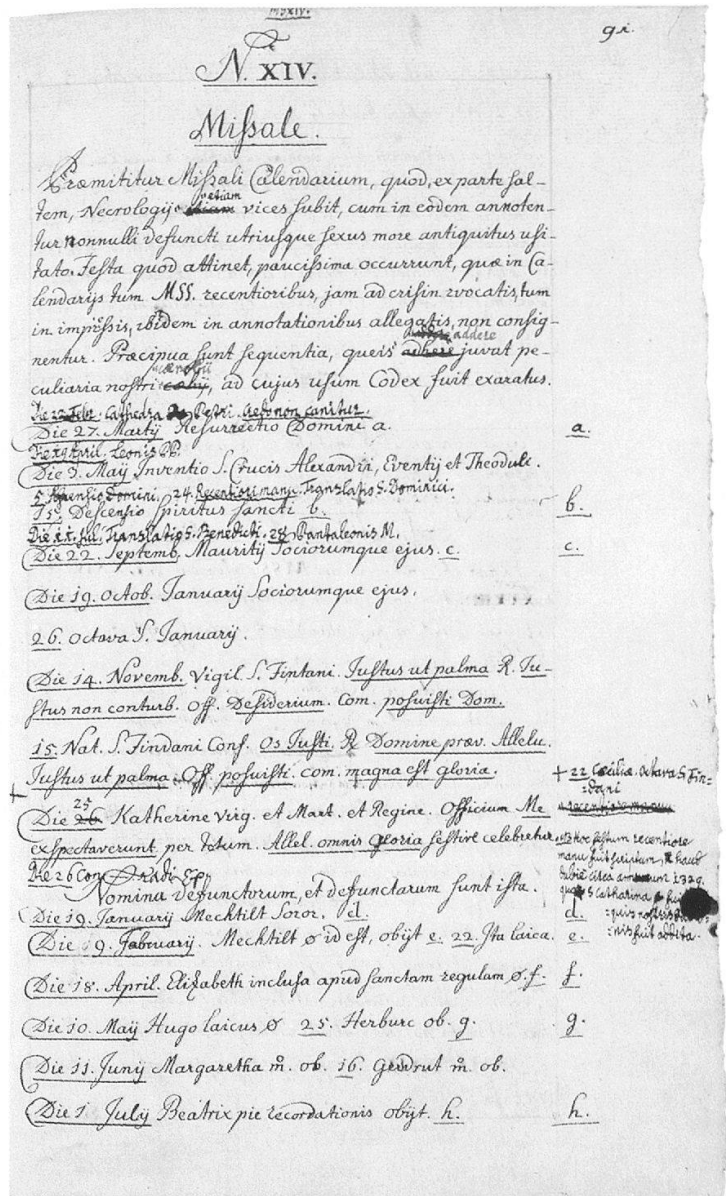 91.
N. XIV.
Missale.
Præmititur Missali Calendarium, quod, ex parte sal-
tem, Necrologij etiam vices subit, cum in eodem annoten-
tur nonnulli defuncti utriusque sexus more antiquitus usi-
tato. Festa quod attinet, paucissima occurrunt, quæ in Ca-
lendarijs tum MSS. recentioribus, jam ad crisin evocatis, tum
in impressis, ibidem in annotationibus allegatis, non consig-
nentur. Præcipua sunt sequentia, queis addere juvat pe-
culiaria nostri cænobii, ad cujus usum Codex fuit exaratus.
Die 22 Febr. Cathedra Petri. Credo non canitur.
Die 27. Martij Resurrectio Domini a. a.
Die 19 April. Leonis PP.
Die 3. Maij Inventio S. Crucis Alexandri, Eventij et Theoduli.
5 Ascensio Domini. 24. Recentiori manu. Translatio S. Dominici.
15. Descensio Spiritus Sancti b. b.
Die 11. Jul. Translatio S. Benedicti. 28 Pantaleonis M.
Die 22. Septemb. Mauritij Sociorumque ejus. c. c.
Die 19. Octob. Januarij Sociorumque ejus.
26. Octava S. Januarij.
Die 14. Novemb. Vigil. S. Fintani. Justus ut palma R. Ju-
stus non conturb. Off. Desiderium. Com. posuisti Dom.
15. Nat. S. Findani Conf. Os Justi. R Domine præv. Allelu.
Justus ut palma. Off. posuisti. com. magna est gloria.
+ 22 Cæciliæ. Octava S. Fin-
=dani
Die 25 Katherine Virg. et Mart. et Regine. Officium Me
exspectaverunt per totum. Allel. omnis gloria festive celebretur.
Hoc festum recentiore
manu fuit scriptum, haud
dubie circa annum 1320.
quo S Catharina
nostris
=nis fuit addita
Die 26 Conradi Ep.
Nomina defunctorum, et defunctarum sunt ista.
Die 19. January Mechtilt Soror. d. d.
Die 19. Februarij. Mechtilt ø id est, obijt e. 22. Ita laica. e.
Die 18. April. Elizabeth inclusa apud sanctam regulam ø f. f.
Die 10. Maij Hugo laicus ø 25. Herburc ob. g. g.
Die 11. Junij Margaretha m. ob. 16. Gerdrut m. ob.
Die 1. July Beatrix pie recordationis obijt. h. h.